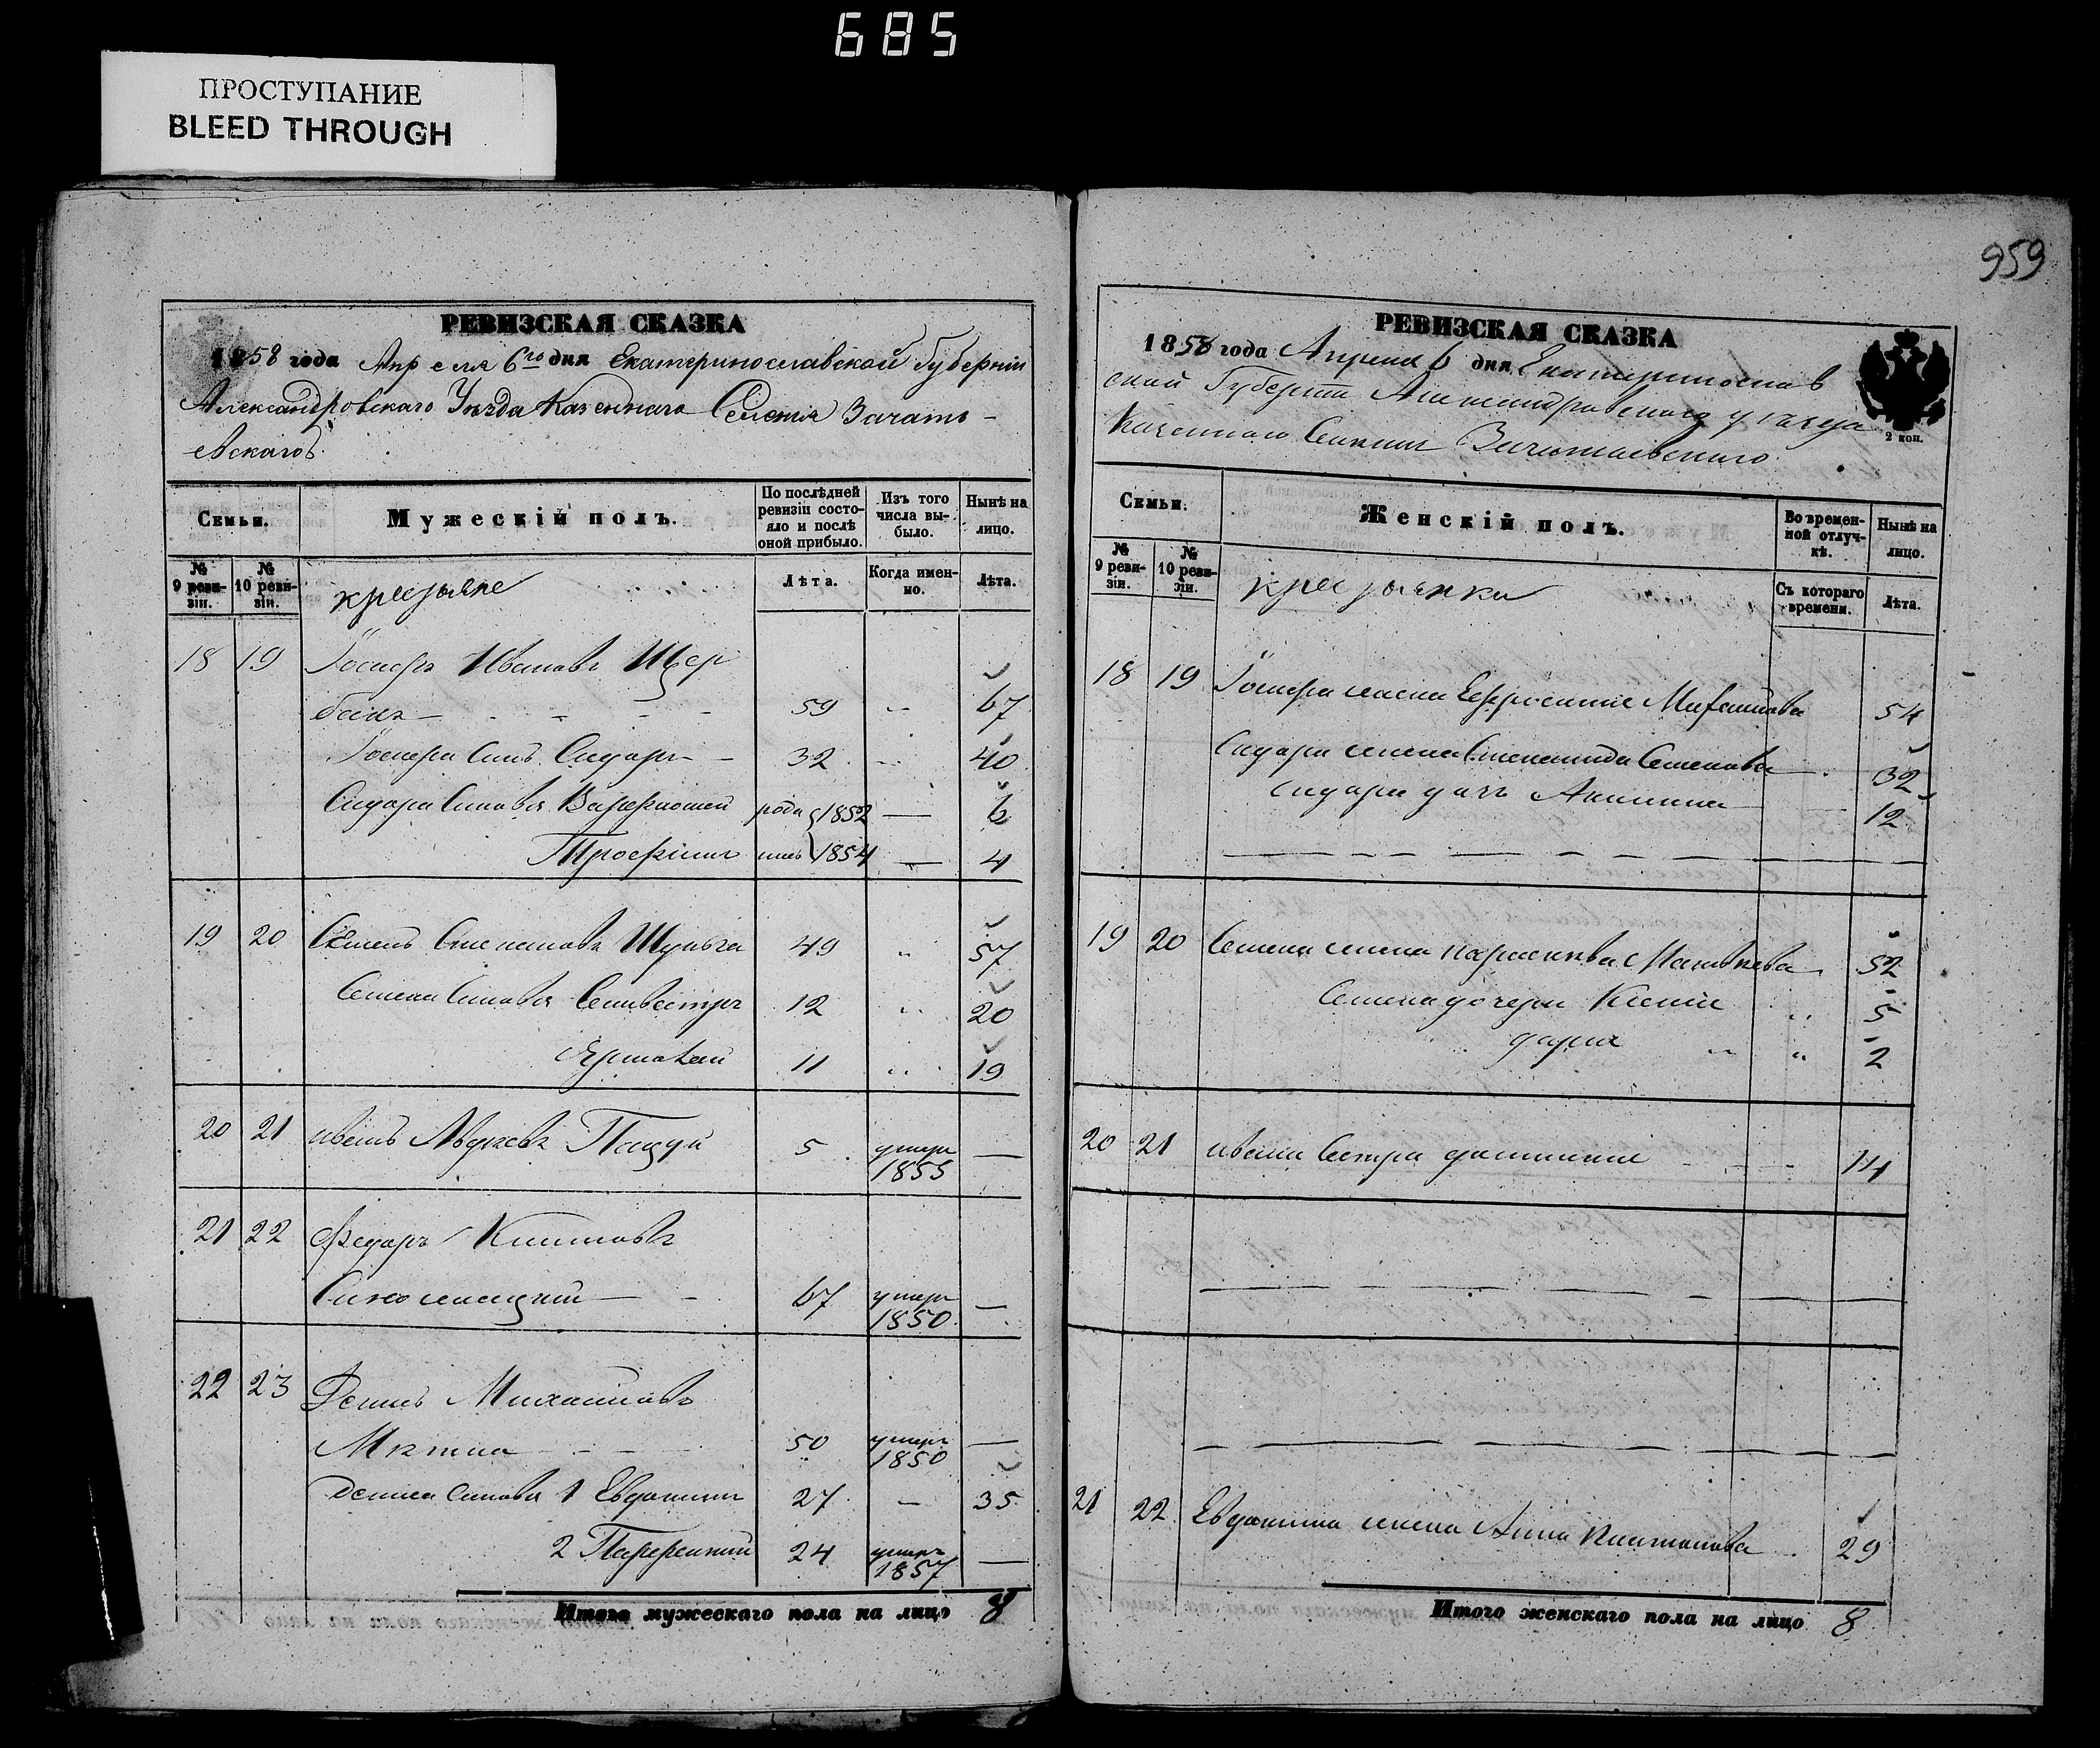 685
ПРОСТУПАНИЕ
BLEED THROUGH
959
РЕВИЗСКАЯ СКАЗКА
1858 года Апреля 6го дня Екатеринославской Губернiи
Александровскаго Уѣзда Казеннаго Селенiя Зачать-
евскаго
Семьи.
Мужескiй полъ.
По послѣдней ревизiи состояло и послѣ оной прибыло.
Изъ того числа выбыло.
Нынѣ на лицо.
№ 9 ревизiи.
№ 10 ревизiи.
крестьяне
Лѣта.
Когда именно.
Лѣта.
18 19 Иванов Щер
бакъ 59 67
Сынъ Сидоръ 32 40
Сидора Сыновья Варфоломей роди 1852 — 6
Трофимъ лись 1854 — 4
19 20 Семенъ Степановъ Шульга 49 57
Семена Сыновья Селивестръ 12 20
Ермолай 11 19
20 21 иванъ Пацуй 5 умеръ 1855 —
21 22 Федоръ
67 умеръ 1850 —
22 23 Денисъ Михайловъ
50 умеръ 1850 —
Дениса Сыновья 1 Евдокимъ 27 — 35
2 24 умеръ 1857 —
Итого мужескаго пола на лицо 8
РЕВИЗСКАЯ СКАЗКА
1858 года Апреля 6 дня Екатеринослав
ской Губернiи Александровскаго уѣзда
Казеннаго Селенiя Зачатьевскаго
2 коп.
Семьи.
Женскiй полъ.
Во временной отлучкѣ.
Нынѣ на лицо.
№ 9 ревизiи.
№ 10 ревизiи.
крестьянки
Съ котораго времени.
Лѣта.
18 19 жена Ефросинiя 54
Сидора жена Степанида Семенова 32
Сидора дочь Акилина 12
19 20 Семена жена Парасковья 52
Семена дочери Ксенiя 5
дарья 2
20 21 ивана Сестра 14
21 22 Евдокима жена Анна 29
Итого женскаго пола на лицо 8